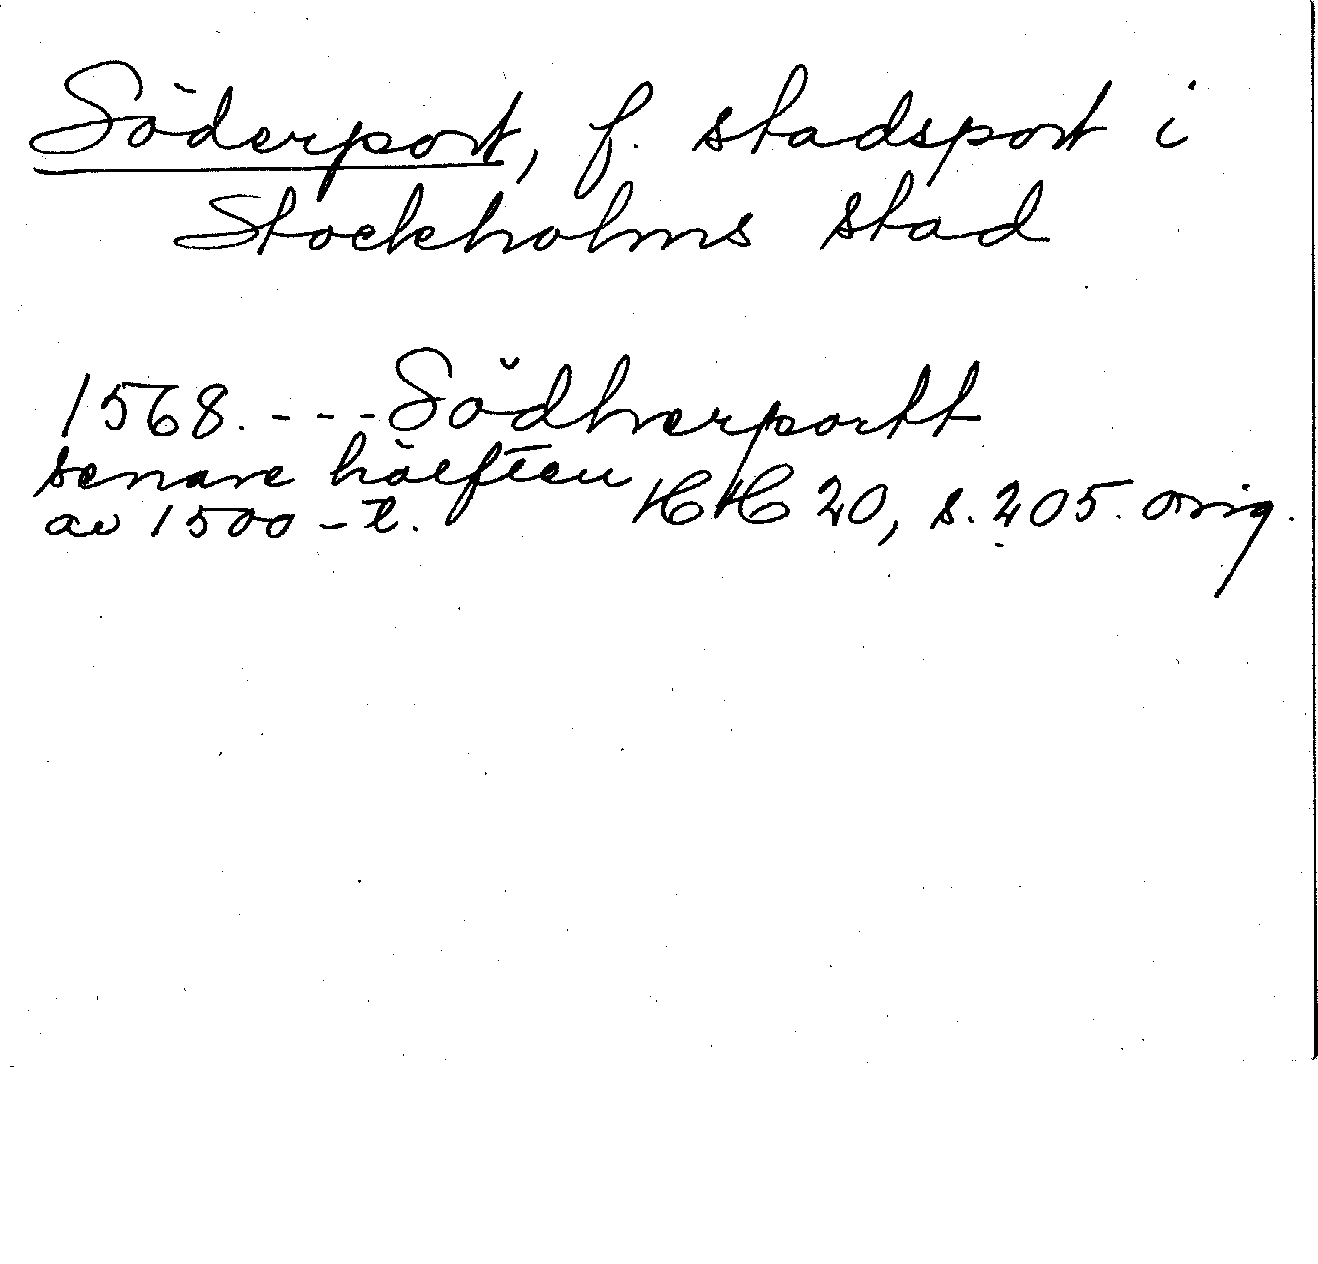 Söderport, f. stadsport i
Stockholms stad
1568. - - - Södherportt
senare hälften
av 1500-t.
HH 20, s. 205. orig.